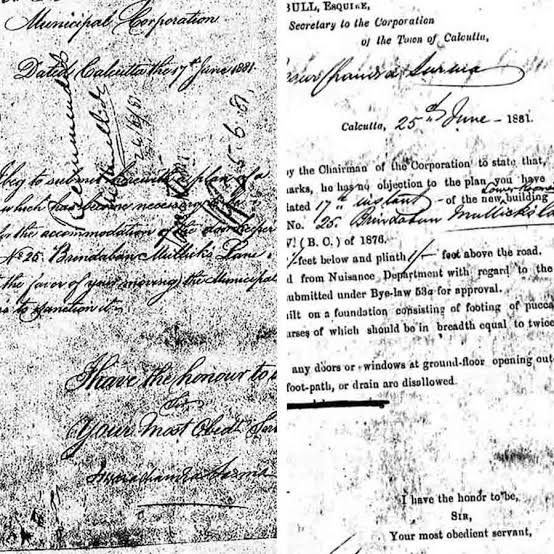 Municipal Corporation
Dated Calcutta the 17th June 1881.
beg to submit herewith a plan of a
which has become necessary
for the accommodation of the
No 25 Brindaban Mullick's Lane
the favor of your moving the Municipal
to sanction it
I have the honour to
Sir
Your Most Obedt. Ser
BULL, ESQUIRE,
Secretary to the Corporation
of the Town of Calcutta,
Calcutta, 25th June - 1881.
by the Chairman of the Corporation to state that,
arks, he has no objection to the plan you have
dated 17th instant - of the new building
No. 25. Brindaban Mullick's
(B. C.) of 1876.
feet below and plinth 1/- feet above the road.
d from Nuisance Department with regard to the
ubmitted under Bye-law 53a for approval.
uilt on a foundation consisting of footing of pucca
urses of which should be in breadth equal to twice
any doors or windows at ground-floor opening out
foot-path, or drain are disallowed.
I have the honor to be,
SIR,
Your most obedient servant,